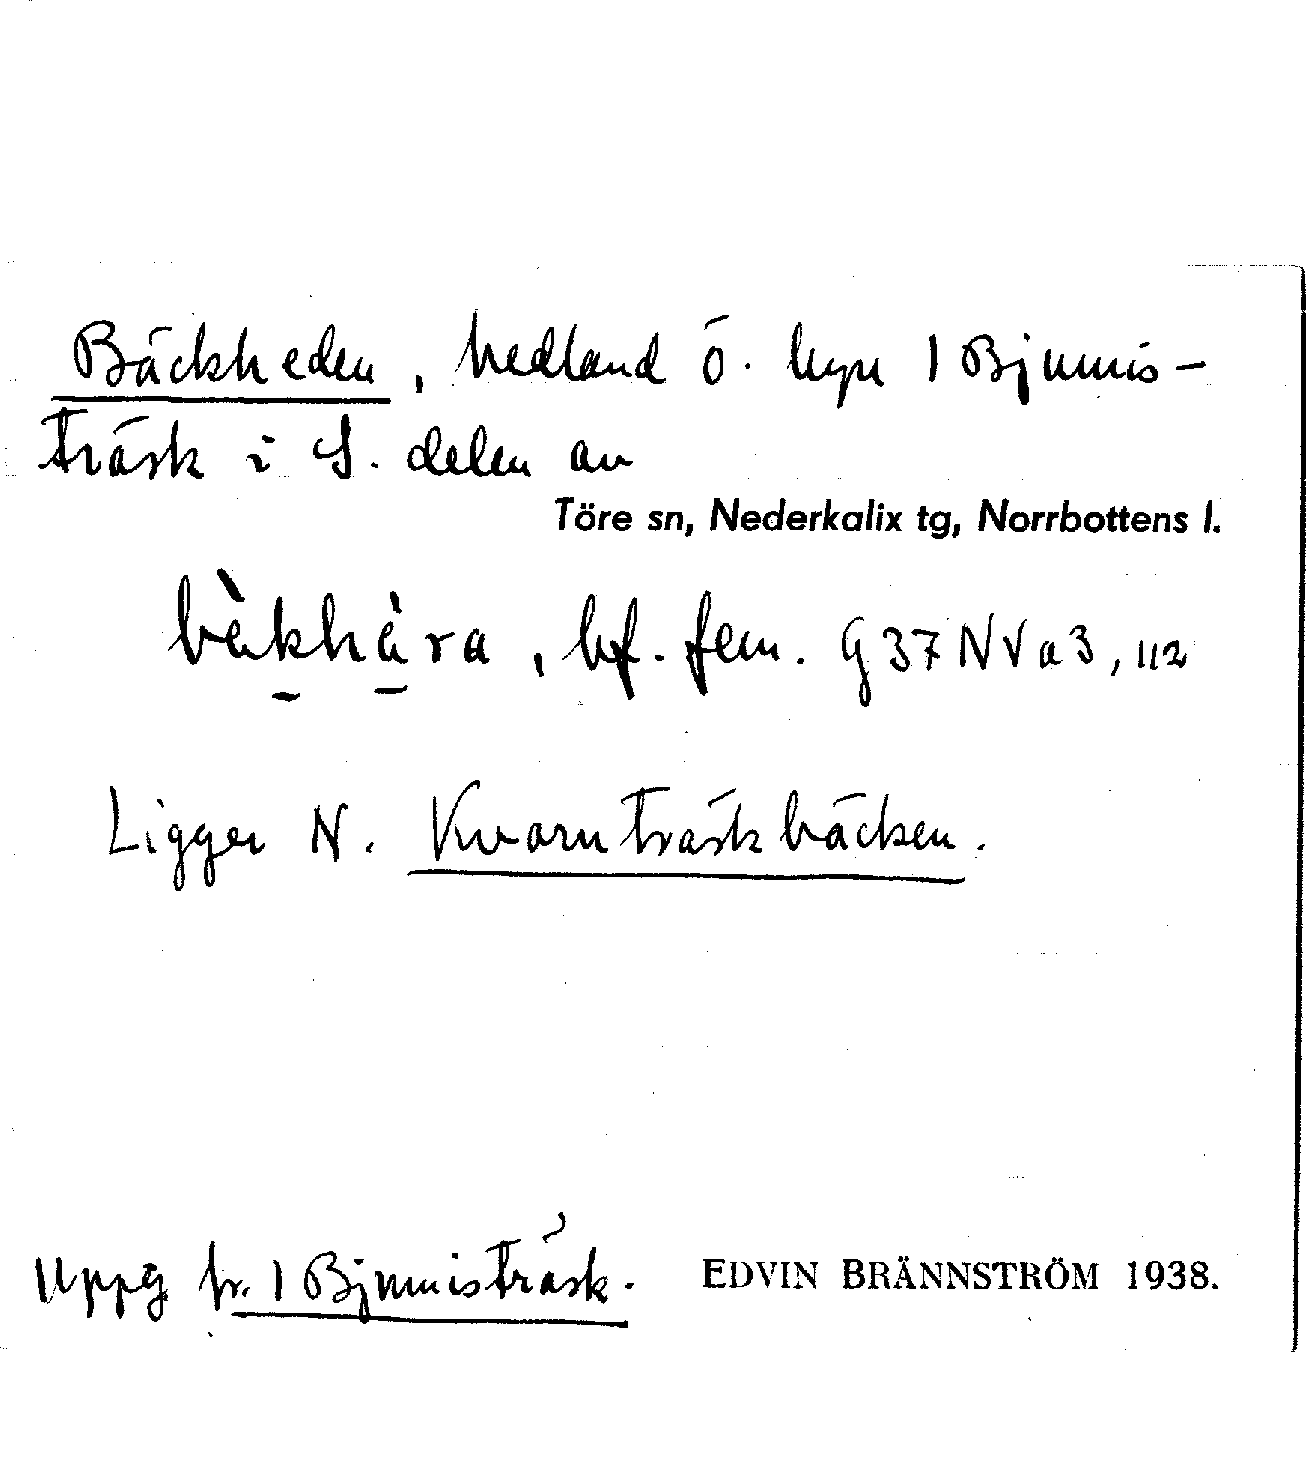 Bäckheden, hedland Ö. byn 1 Bjumis-
träsk i S. delen av
Töre sn, Nederkalix tg, Norrbottens l.
bàkhàra, bf. fem. G 37 NV a 3, 112
Ligger N. Kvarnträskbäcken.
Uppg fr. 1 Bjumisträsk. EDVIN BRÄNNSTRÖM 1938.